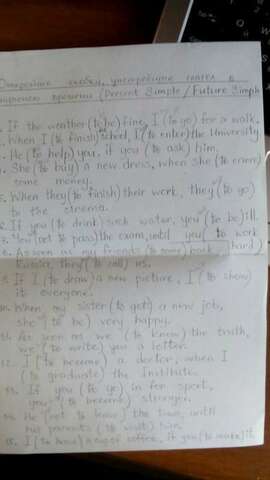 Откройте скобки, употребите глагол в
времени (Present Simple / Future Simple
1. If the weather (to be) fine, I (to go) for a walk.
2. When I (to finish) school, I (to enter) the University.
3. He (to help) you, if you (to ask) him.
4. She (to buy) a new dress, when she (to earn)
some money.
5. When they (to finish) their work, they (to go)
to the cinema.
6. If you (to drink) such water, you (to be) ill.
7. You (not to pass) the exam, until you (to work
hard)
8. As soon as my friends (to come) back
Russia, they (to call) us.
9. If I (to draw) a new picture, I (to show)
it everyone.
10. When my sister (to get) a new job,
she (to be) very happy.
11. As soon as we (to know) the truth,
we (to write) you a letter.
12. I (to become) a doctor, when I
(to graduate) the Institute.
13. If you (to go) in for sport,
you (to become) stronger.
14. He (not to leave) the town, until
his parents (to visit) him.
15. I (to have) a cup of coffee, if you (to make) it.